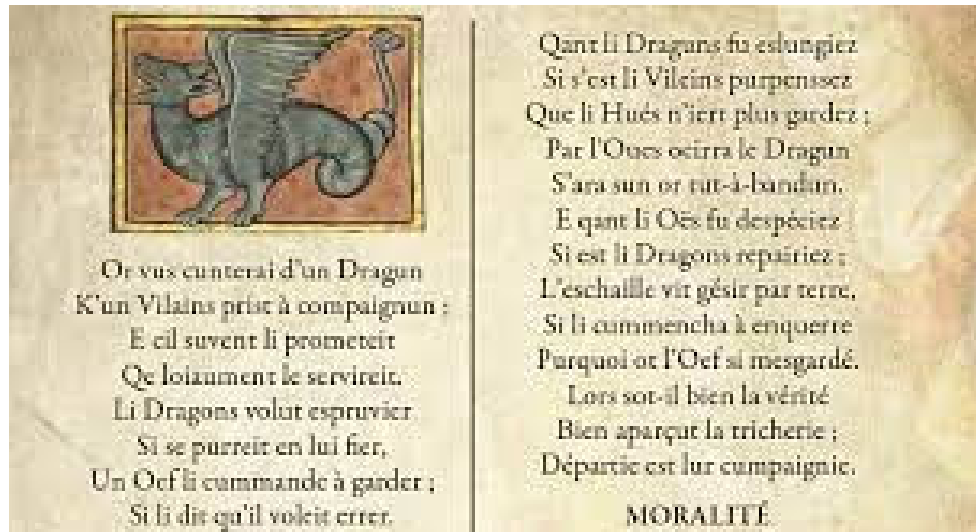 Or vus cunterai d'un Dragun
K'un Vilains prist à compaignun ;
E cil suvent li prometeit
Qe loiaument le servireit.
Li Dragons volut espruvier
Si se purreit en lui fier,
Un Oef li cummande à garder ;
Si li dit qu'il voleit errer.
Qant li Draguns fu eslungiez
Si s'est li Vileins purpenssez
Que li Hués n'iert plus gardez ;
Par l'Oues ocirra le Dragun
S'ara sun or tut-à-bandun.
E qant li Oës fu despéciez
Si est li Dragons repairiez ;
L'eschaille vit gésir par terre,
Si li cummencha à enquerre
Purquoi ot l'Oef si mesgardé.
Lors sot-il bien la vérité
Bien aparçut la tricherie ;
Départie est lur cumpaignie.
MORALITÉ